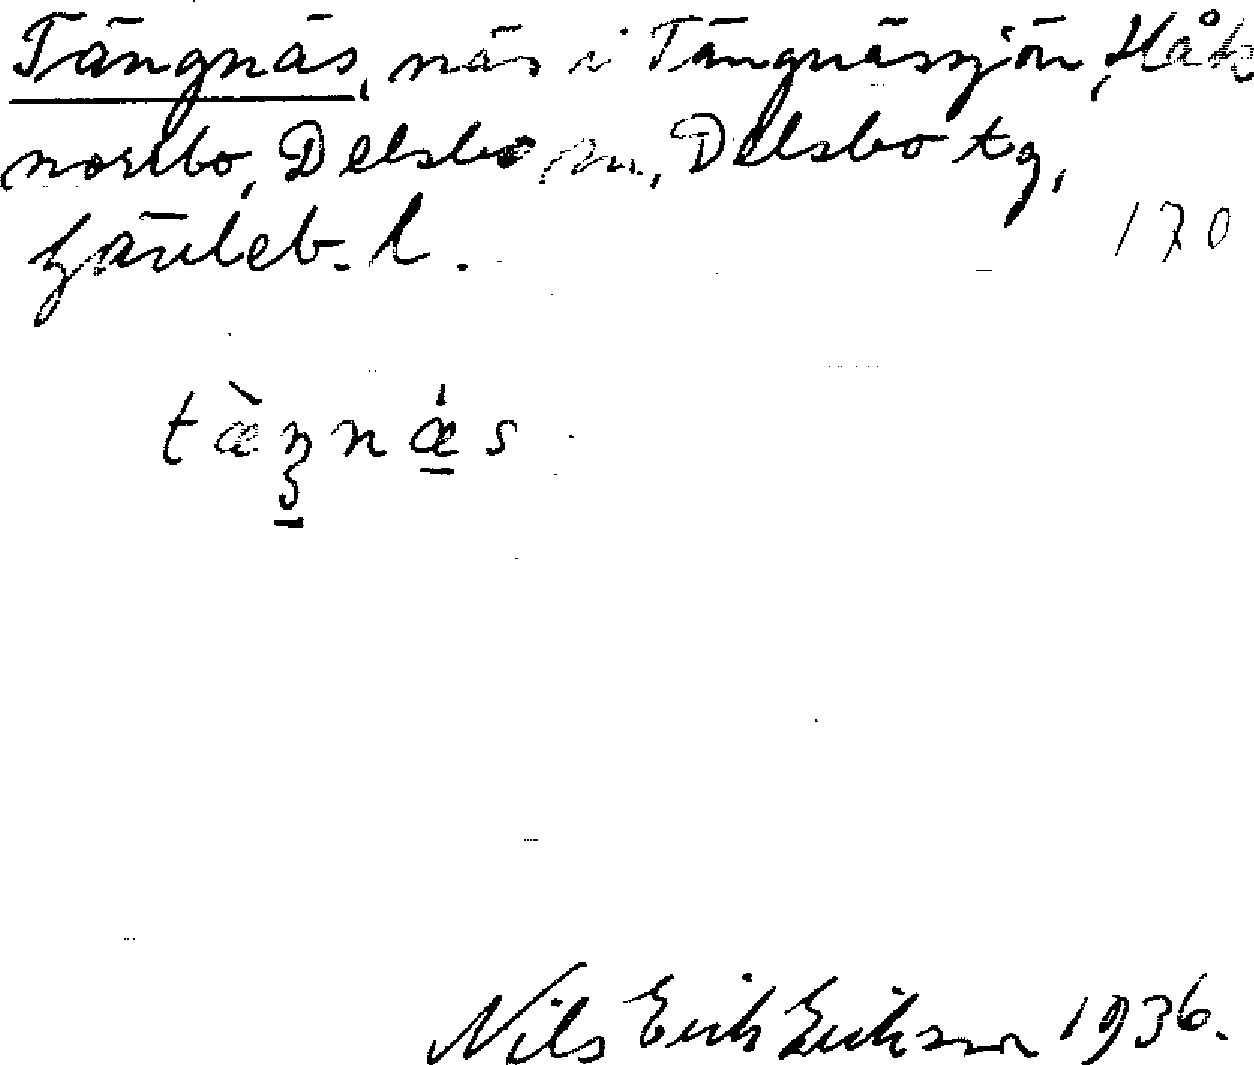 Tängnäs, näs i Tängnässjön, Håk
norrbo, Delsbo sn., Delsbo tg,
Gävleb. l.
170
tæ̀ŋnǽs
Nils Erik Eriksson 1936.